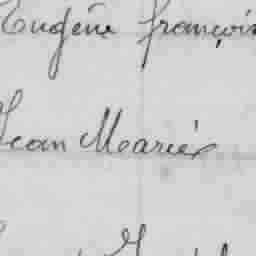 Eugène françois
Jean Marie